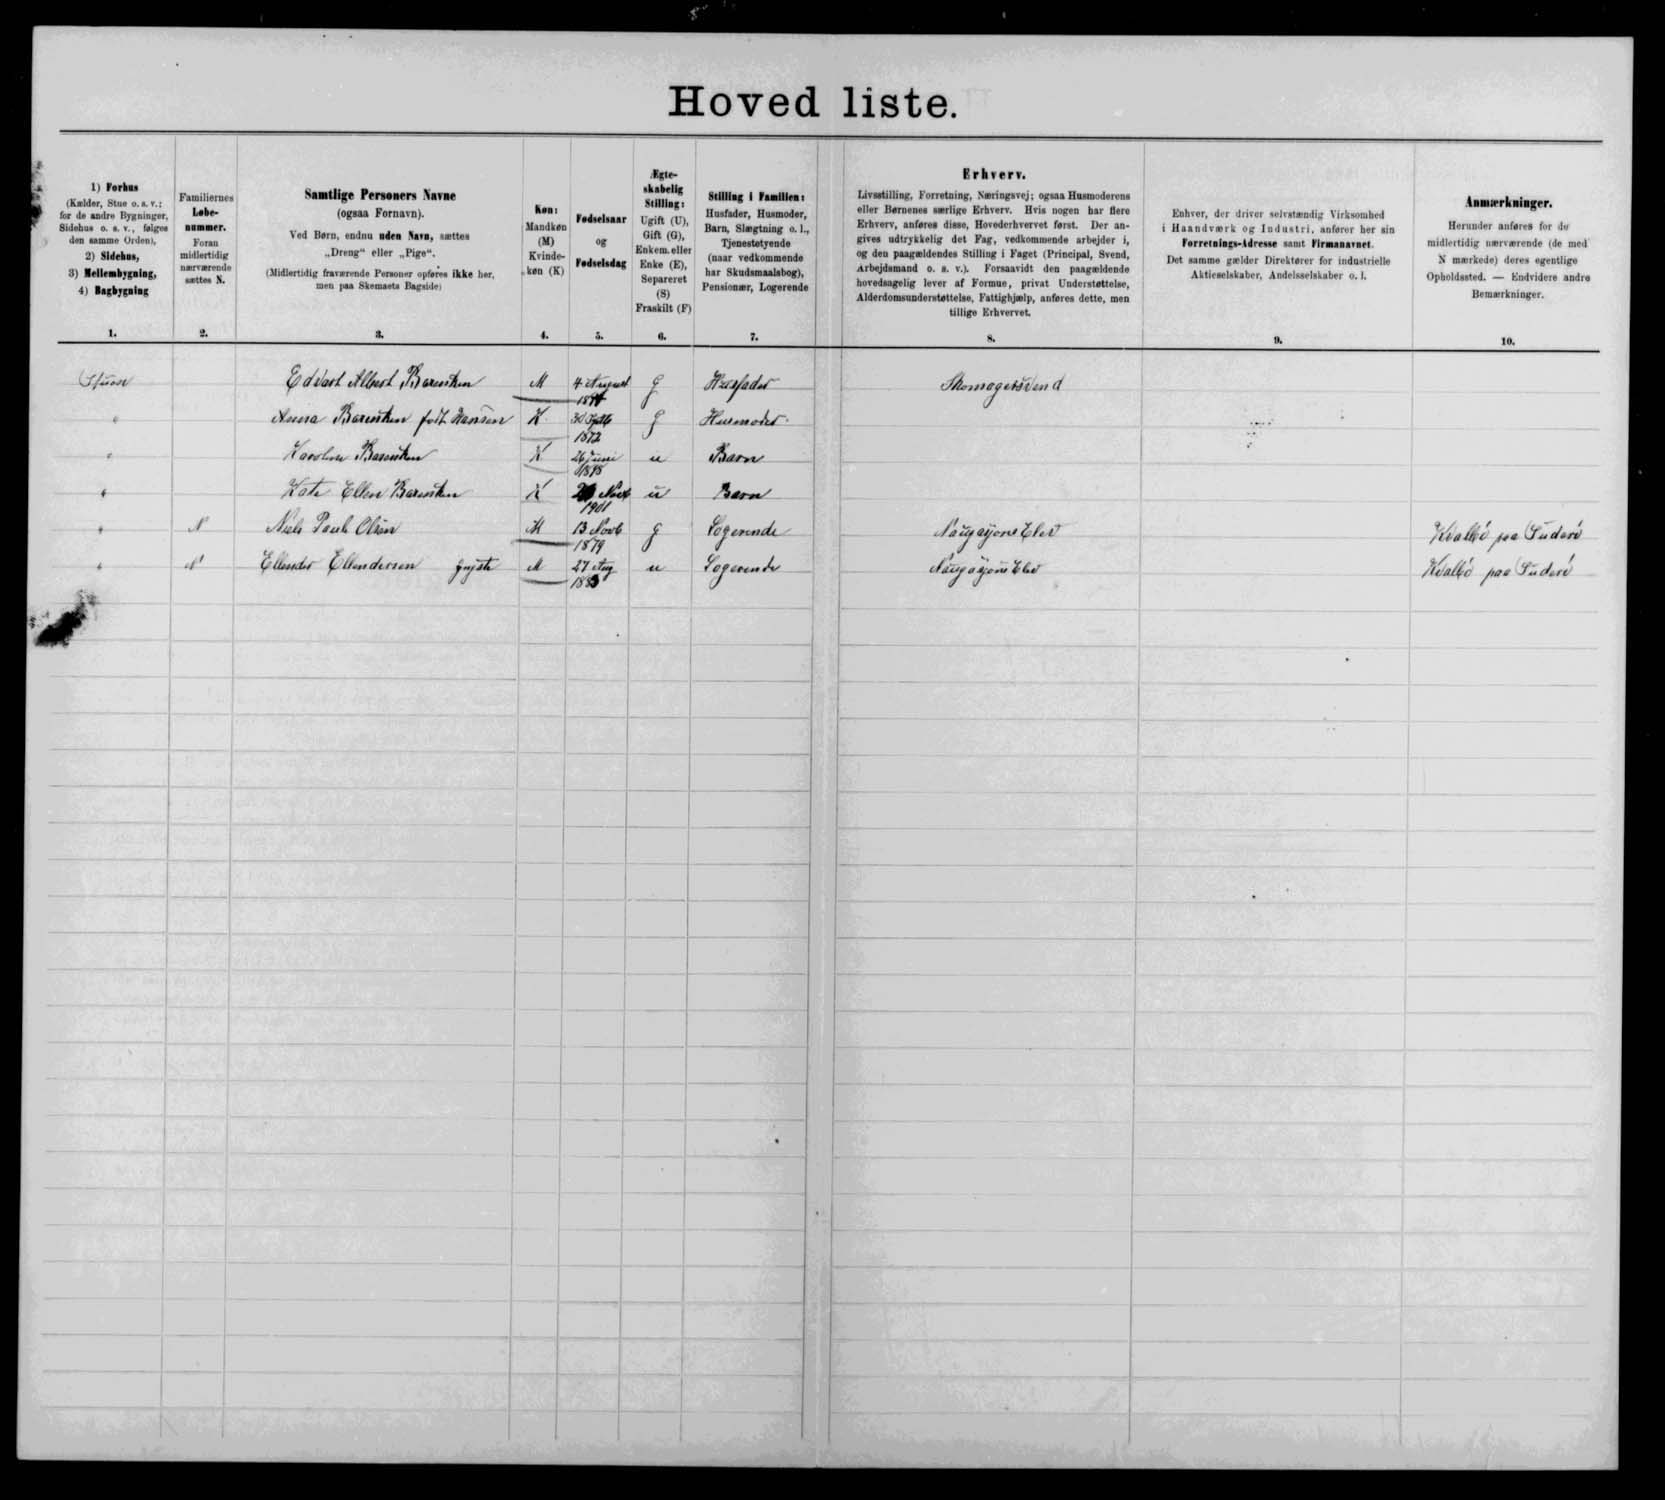 Hoved liste.
1) Forhus
(Kælder, Stue o. s. v.;
for de andre Bygninger,
Sidehus o. s. v., følges
den samme Orden),
2) Sidehus,
3) Mellembygning,
4) Bagbygning
1.
Familiernes
Løbe-
nummer.
Foran
midlertidig
nærværende
sættes N.
2.
Samtlige Personers Navne
(ogsaa Fornavn).
Ved Børn, endnu uden Navn, sættes
„Dreng" eller „Pige".
(Midlertidig fraværende Personer opføres ikke her,
men paa Skemaets Bagside)
3.
Køn:
Mandkøn
(M)
Kvinde-
køn (K)
4.
Fødselsaar
og
Fødselsdag
5.
Ægte-
skabelig
Stilling:
Ugift (U),
Gift (G),
Enkem. eller
Enke (E),
Separeret
(S)
Fraskilt (F)
6.
Stilling i Familien:
Husfader, Husmoder,
Barn, Slægtning o. l.,
Tjenestetyende
(naar vedkommende
har Skudsmaalsbog),
Pensionær, Logerende
7.
Erhverv.
Livsstilling, Forretning, Næringsvej; ogsaa Husmoderens
eller Børnenes særlige Erhverv. Hvis nogen har flere
Erhverv, anføres disse, Hovederhvervet først. Der an-
gives udtrykkelig det Fag, vedkommende arbejder i,
og den paagældendes Stilling i Faget (Principal, Svend,
Arbejdsmand o. s. v.). Forsaavidt den paagældende
hovedsagelig lever af Formue, privat Understøttelse,
Alderdomsunderstøttelse, Fattighjælp, anføres dette, men
tillige Erhvervet.
8.
Enhver, der driver selvstændig Virksomhed
i Haandværk og Industri, anfører her sin
Forretnings-Adresse samt Firmanavnet.
Det samme gælder Direktører for industrielle
Aktieselskaber, Andelsselskaber o. l.
9.
Anmærkninger.
Herunder anføres for de
midlertidig nærværende (de med
N mærkede) deres egentlige
Opholdssted. — Endvidere andre
Bemærkninger.
10.
Stuen Edvart Albert M 4 August G Husfader Skomagersvend
" Anna født Hansen K 30 G Husmoder
1872
" K 26 Juni u Barn
1898
" Kate Ellen K Novb u Barn
1901
" N Niels Paul Olsen M 13 Novb G Logerende Elev Kvalbø paa Suderö
1879
" N Ellender Ellendersen M 27 Aug u Logerende Elev Kvalbø paa Suderö